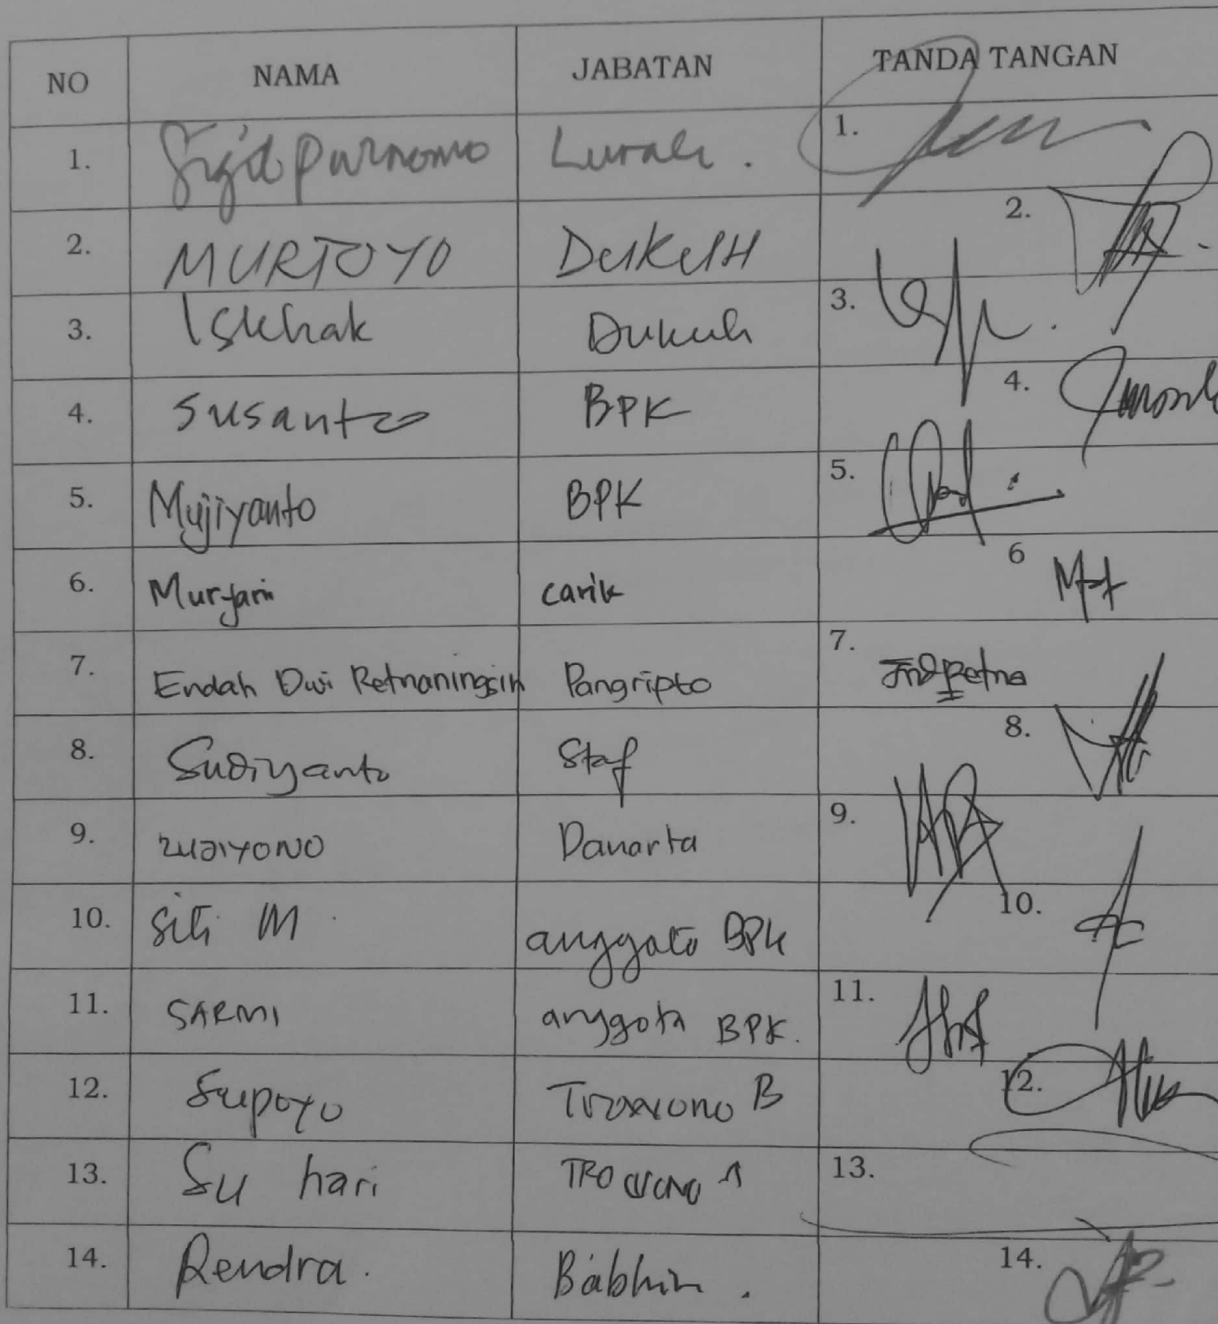 NO NAMA JABATAN TANDA TANGAN
1. Sigit Purnomo Lurah. 1.
2. MURTOYO DUKUH 2.
3. Iskhak Dukuh 3.
4. Susanto BPK 4.
5. Mujiyanto BPK 5.
6. Muryani carik 6
7. Endah Dwi Retnaningsih Pangripto 7. End Retna
8. Sudiyanto Staf 8.
9. Danarta 9.
10. Siti M anggota BPK 10.
11. SARMI anggota BPK. 11.
12. Supoyo Trowono B 12.
13. Su hari TROWONO A 13.
14. Rendra. Babhin. 14.